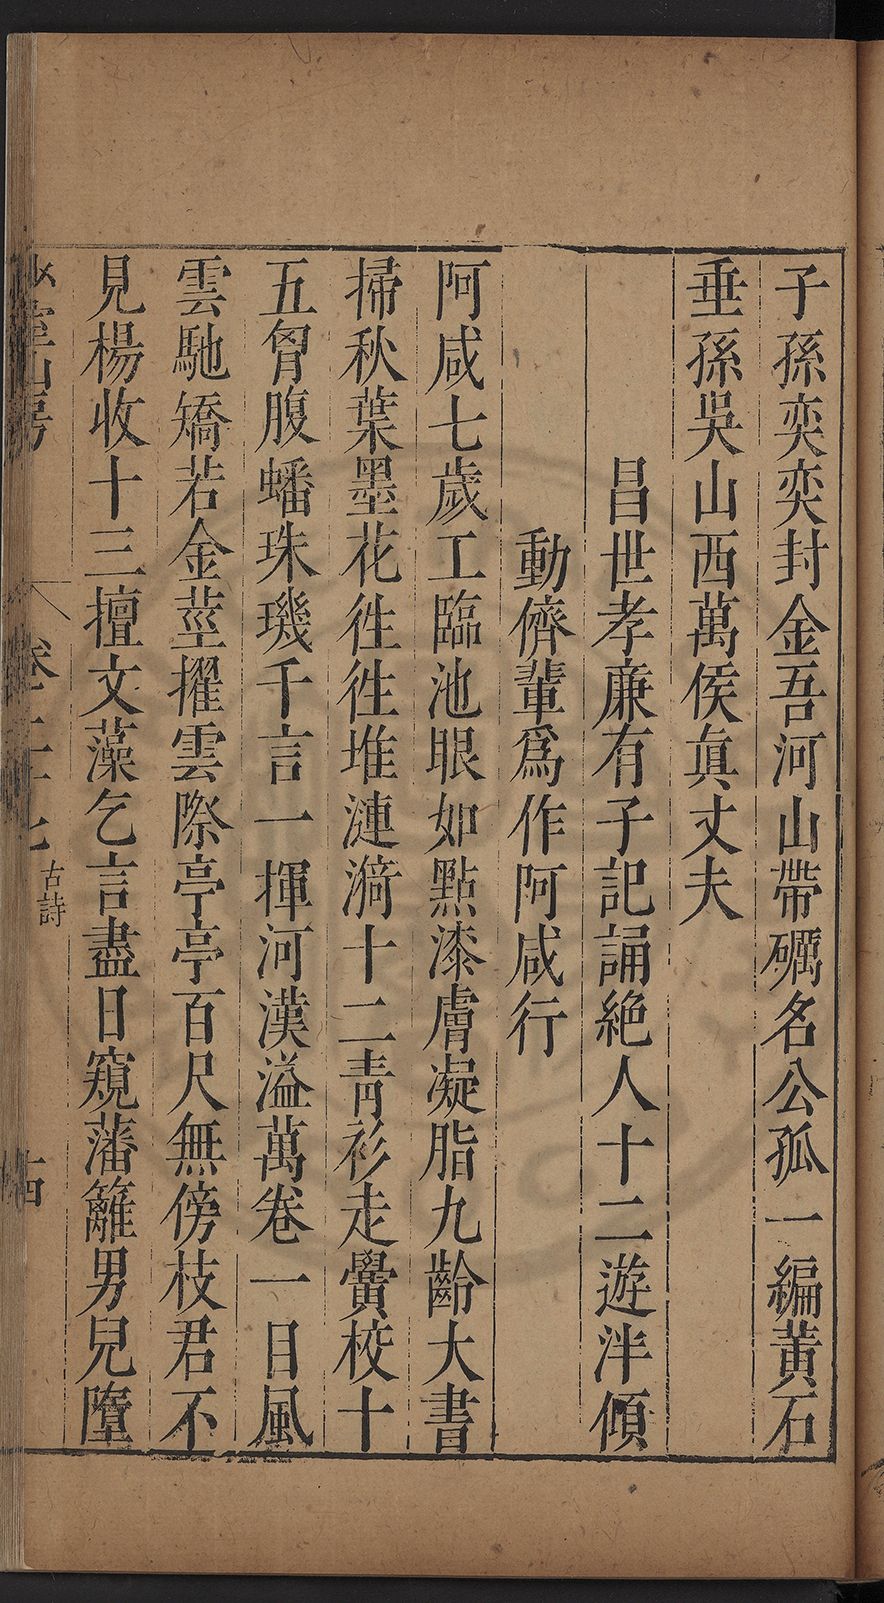 子孫奕奕封金吾河山帶礪名公孤一編黃石
垂孫吳山西萬侯眞丈夫
昌世孝廉有子記誦絶人十二遊泮傾
動儕輩爲作阿咸行
阿咸七歲工臨池眼如點漆膚凝脂九齡大書
掃秋葉墨花徃徃堆漣漪十二靑衫走黌校十
五胷腹蟠珠璣千言一揮河漢溢萬卷一日風
雲馳矯若金莖擢雲際亭亭百尺無傍枝君不
見楊收十三擅文藻乞言盡日窺藩籬男兒墮
山房
卷二十七
古詩
十四